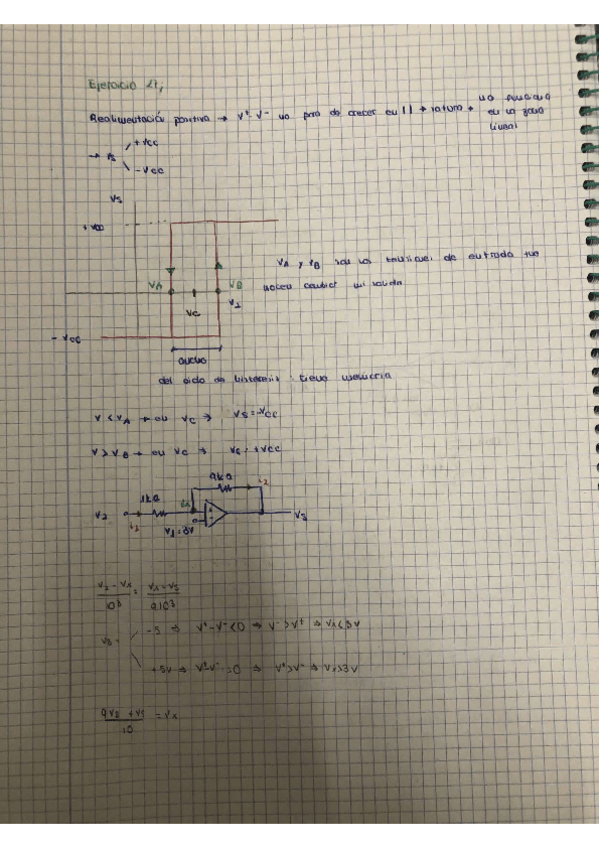 Ejercicio 21,
Realimentación positiva → V⁺-V⁻ va para de crecer en | | →
no funciona
en la zona
lineal
→ Vs +Vcc
-Vcc
Vs
+
VA VB
VC
V1
VA y VB son las tensiones de entrada que
hacen cambiar mi salida
- Vcc
ancho
del ciclo de histéresis: tiene memoria
V < VA → en VC ⇒ Vs = -Vcc
V > VB → en VC ⇒ Vs = +Vcc
9kΩ
1kΩ
V2
V3
V2 - Vx / 10³ = Vx - V3 / 9·10³
-5 ⇒ V⁺-V⁻<0 ⇒ V⁻>V⁺ ⇒ Vx<3V
+5V ⇒ V⁺-V⁻>0 ⇒ V⁺>V⁻ ⇒ Vx>3V
9V2 + V3 / 10 = Vx